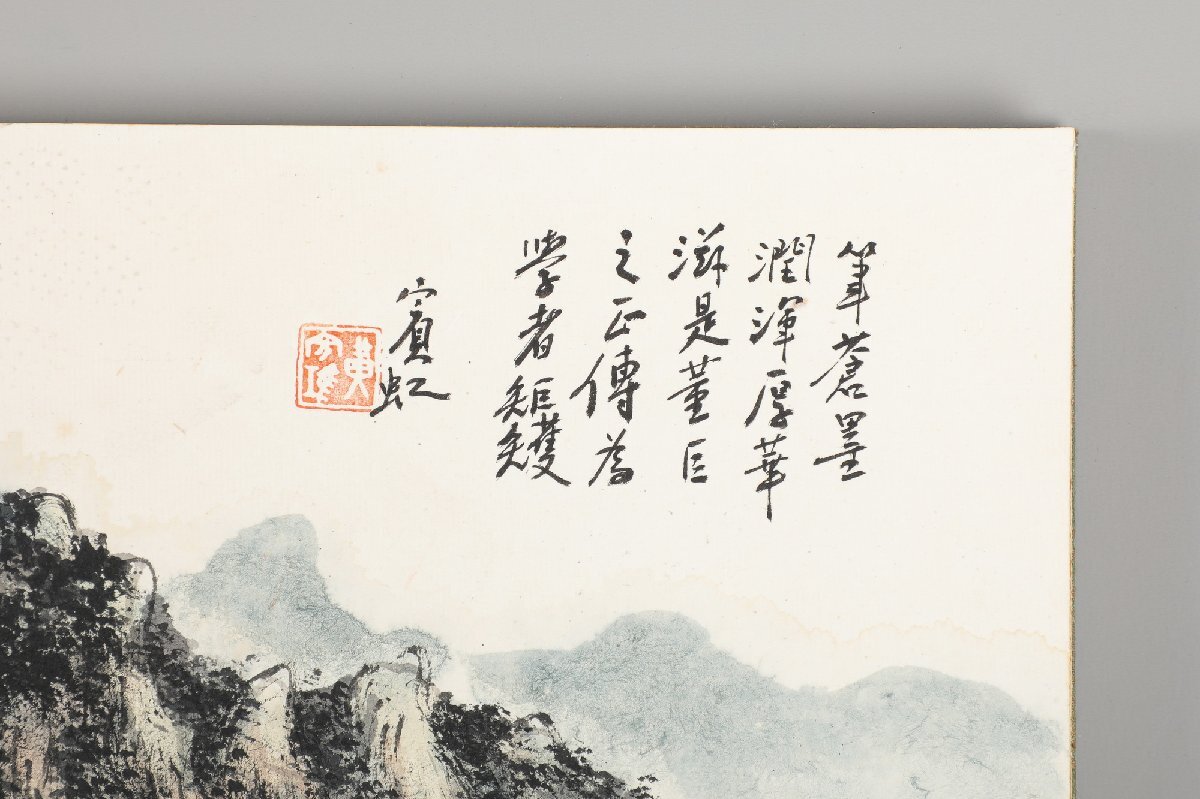 筆蒼墨
潤渾厚華
滋是董巨
之正傳為
學者矩矱
賓虹
黃賓虹